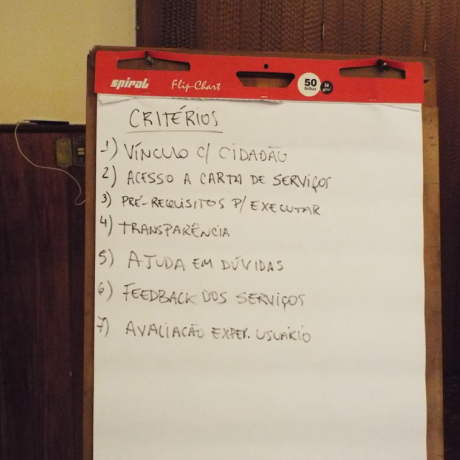 spiral Flip-Chart 50 folhas
CRITÉRIOS
1) VÍNCULO C/ CIDADÃO
2) ACESSO A CARTA DE SERVIÇOS
3) PRÉ-REQUISITOS P/ EXECUTAR
4) TRANSPARÊNCIA
5) AJUDA EM DÚVIDAS
6) FEEDBACK DOS SERVIÇOS
7) AVALIAÇÃO EXPER. USUÁRIO